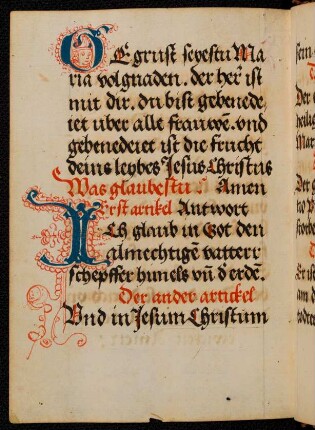 GEgrust seyestu Ma
ria vol gnaden. der her ist
mit dir. du bist gebenede
iet uber alle frauwē. vnd
gebenedeiet ist die frucht
deins leybes Jesus Christus
Was glaubestu Amen
Erst artikel Antwort
ICh glaub in Got den
almechtigē vatterr
schepffer himels vn̄ d erdē.
Der ander artickel
Vnd in Jesum Christum